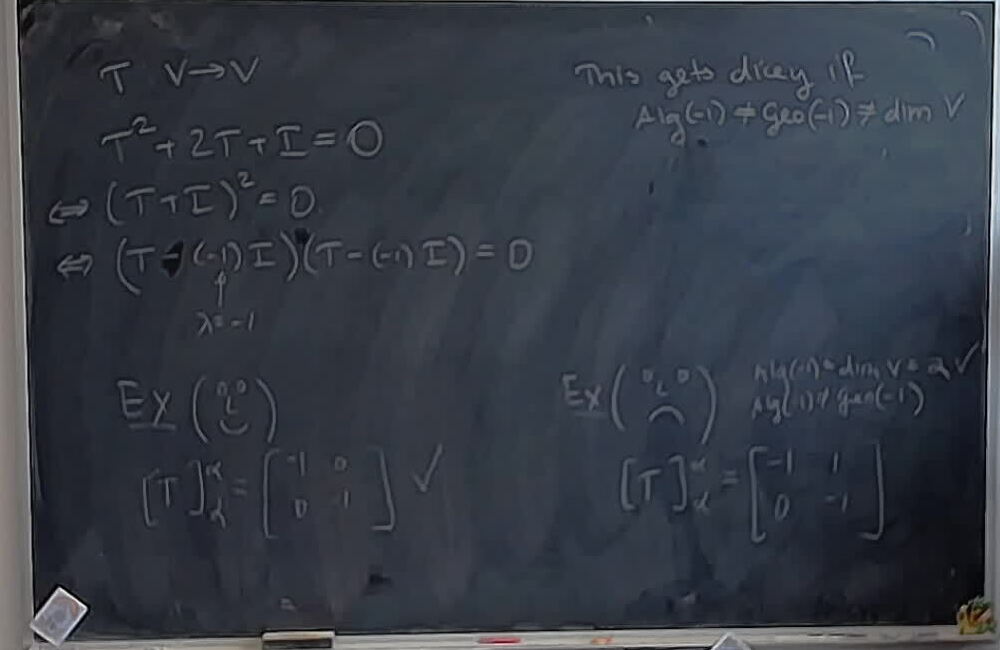 T V→V
T² + 2T + I = 0
⇔ (T+I)² = 0
⇔ (T - (-1)I)(T - (-1)I) = 0
λ = -1
This gets dicey if
Alg(-1) ≠ geo(-1) ≠ dim V
Ex
[T]αα = [-1 0
0 -1] ✓
Ex
Alg(-1) = dim V = 2 ✓
Alg(-1) ≠ geo(-1)
[T]αα = [-1 1
0 -1]